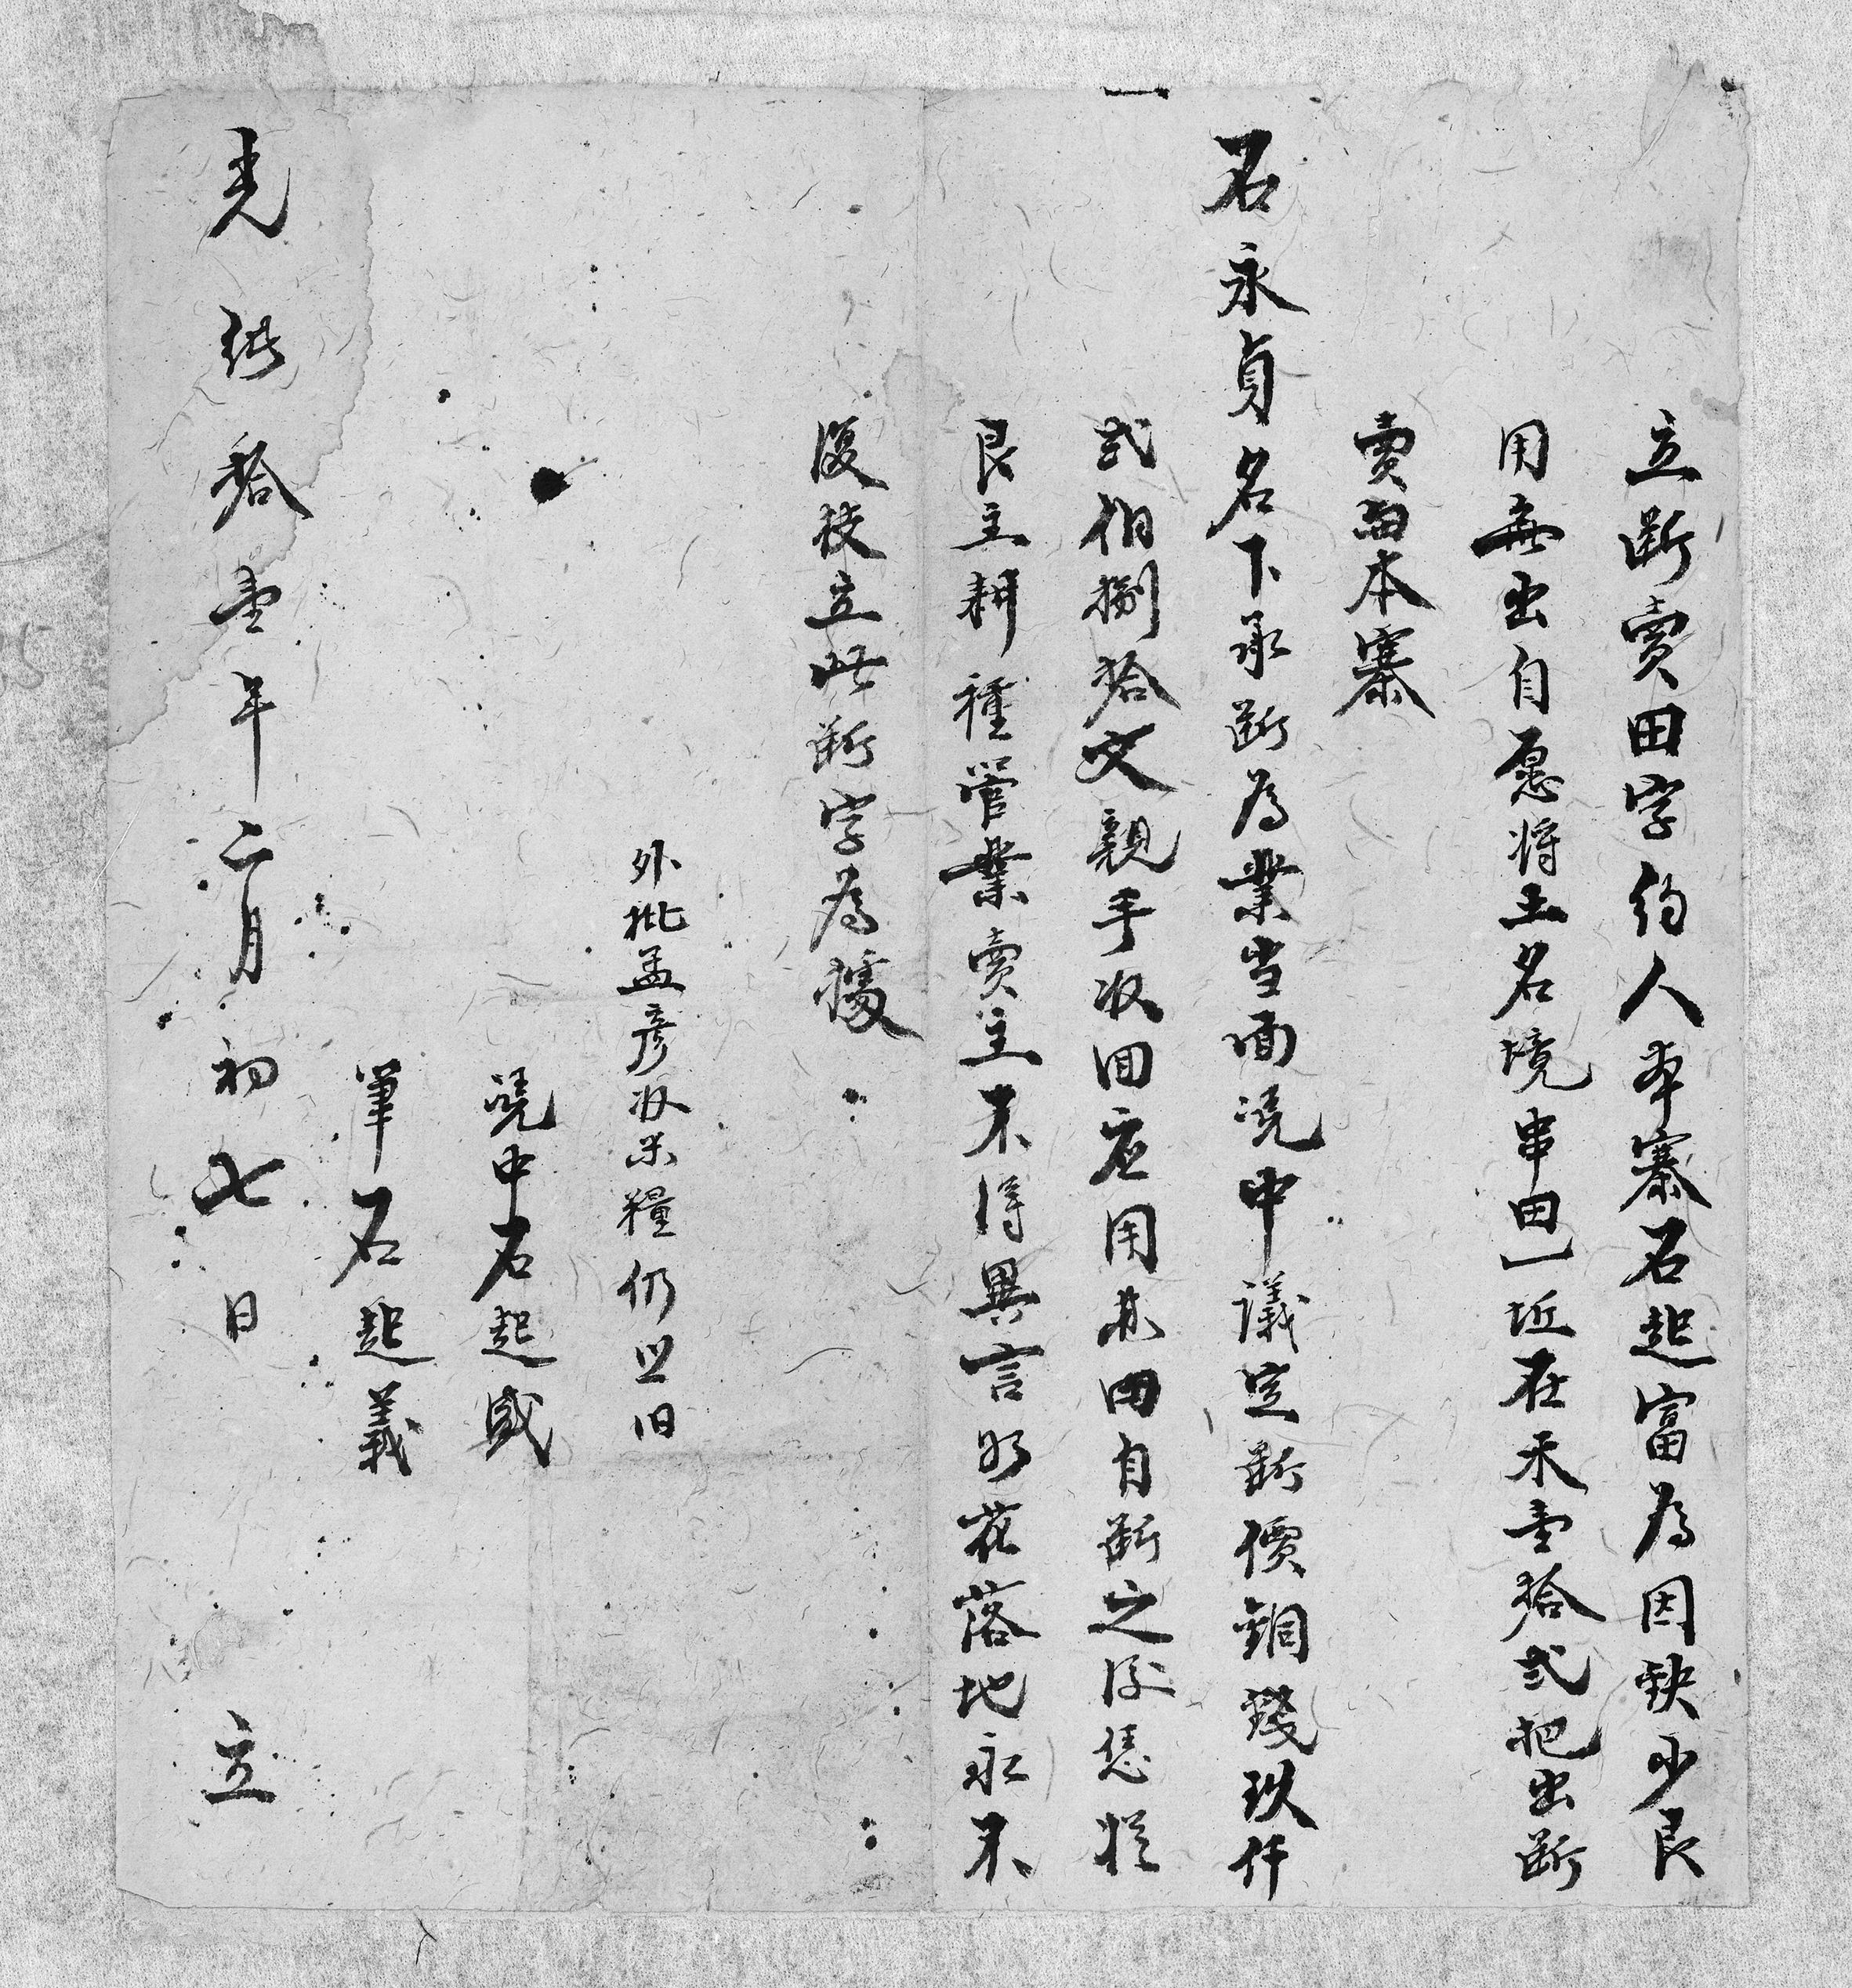 立断賣田字約人本寨石起富為因缺少艮
用無出自愿将土名境串田一坵在禾壹拾弍把出断
賣與本寨
石永貞名下承断為業当面凴中議定断價銅錢玖仟
弍伯捌拾文親手收回应用其田自断之後恁從
艮主耕種管業賣主不得異言如花落地永不
復枝立此断字為據
外批孟彦收米糧仍照旧
凴中石起盛
筆石起義
光緒拾壹年二月初七日立